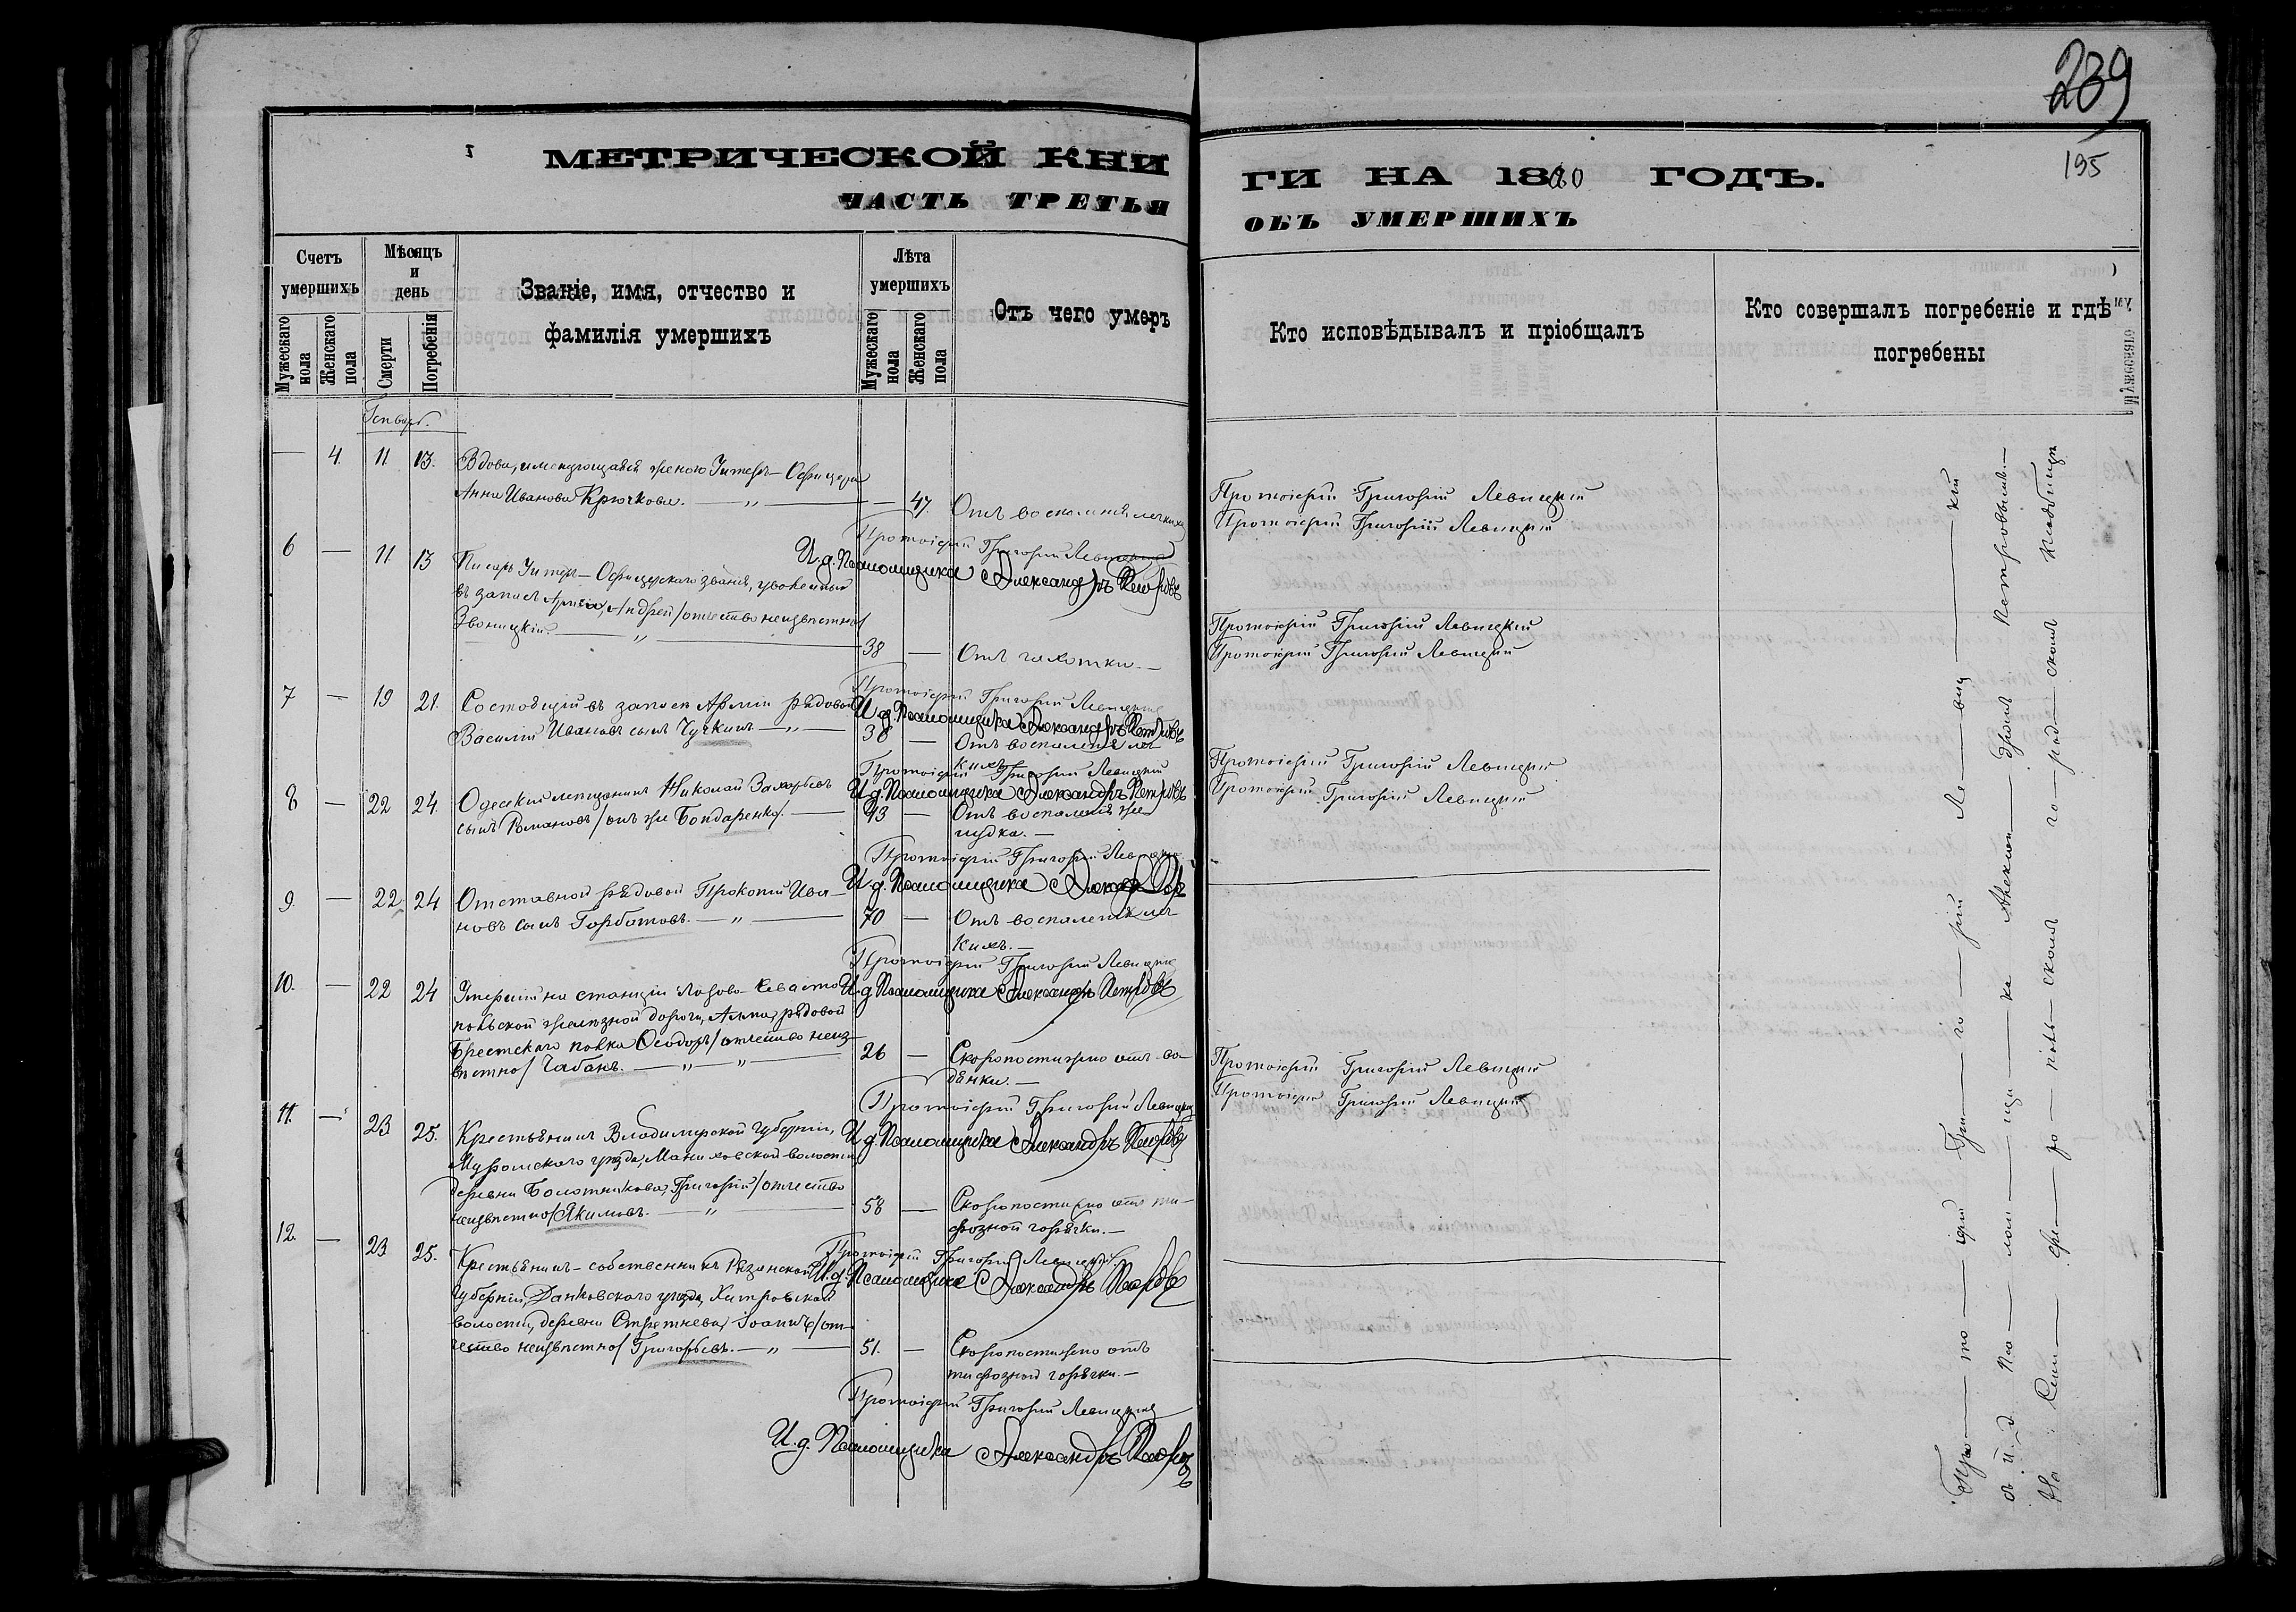 239
195
МЕТРИЧЕСКОЙ КНИ
ГИ НА 1880 ГОДЪ.
ЧАСТЬ ТРЕТЬЯ
ОБЪ УМЕРШИХЪ
Счетъ умершихъ
Мужескаго пола
Женскаго пола
Мѣсяцъ и день
Смерти
Погребенія
Званіе, имя, отчество и фамилія умершихъ
Лѣта умершихъ
Мужескаго пола
Женскаго пола
Отъ чего умеръ
Кто исповѣдывалъ и пріобщалъ
Кто совершалъ погребеніе и гдѣ погребены
Январь.
— 4. 11 13. Вдова, именующаяся женою Унтеръ-Офицера
Анна Иванова Крючкова. — „ — — 47. Отъ воспаленія легкихъ
Протоіерей Григорій Левицкій
Протоіерей Григорій Левицкій
Протоіерей Григорій Левицкій
И. д. Псаломщика Александръ Петровъ
6 — 11 13 Писарь Унтеръ-Офицерскаго званія, уволенный
въ запасъ Арміи, Андрей /отчество неизвѣстно/
Звоницкій. — „ — 38 — Отъ чахотки. —
Протоіерей Григорій Левицкій
Протоіерей Григорій Левицкій
Протоіерей Григорій Левицкій
И. д. Псаломщика Александръ Петровъ
7 — 19 21. Состоящій въ запасѣ Арміи рядовой
Василій Ивановъ сынъ Чучкинъ — „ — 38 — Отъ воспаленія лег-
кихъ
Протоіерей Григорій Левицкій
Протоіерей Григорій Левицкій
Протоіерей Григорій Левицкій
И. д. Псаломщика Александръ Петровъ
8 — 22 24. Одесскій мещанинъ Николай Захарьевъ
сынъ Романовъ /онъ же Бондаренко/. — 43 — Отъ воспаленія же-
лудка. —
Протоіерей Григорій Левицкій
И. д. Псаломщика
9. — 22 24 Отставной рядовой Прокопій Ива-
новъ сынъ Горбатовъ. — „ — 70 — Отъ воспаленія лег-
кихъ. —
Протоіерей Григорій Левицкій
И. д. Псаломщика Александръ Петровъ
10. — 22 24 Умершій на станціи Лозово-Севасто-
польской желѣзной дороги, Альма, рядовой
Брестскаго полка Ѳеодоръ /отчество неиз-
вѣстно/ Чабанъ. — „ — „ — 26 — Скоропостижно отъ во-
дянки. —
Протоіерей Григорій Левицкій
Протоіерей Григорій Левицкій
Протоіерей Григорій Левицкій
И. д. Псаломщика Александръ Петровъ
11. — 23 25. Крестьянинъ Владимірской Губерніи,
Муромскаго уѣзда, волости
деревни Болотникова, Григорій /отчество
неизвѣстно/ Якимовъ. — „ — 58 — Скоропостижно отъ ти-
фозной горячки. —
Протоіерей Григорій Левицкій
И. д. Псаломщика Александръ Петровъ
12. — 23 25. Крестьянинъ-собственникъ Рязанской
Губерніи, Данковскаго уѣзда, Хитровской
волости, деревни Іоаннъ /от-
чество неизвѣстно/ Григорьевъ. — „ — 51. — Скоропостижно отъ
тифозной горячки. —
Протоіерей Григорій Левицкій
И. д. Псаломщика Александръ Петровъ
Про — то — іерей Гри — го — рій Ле — виц — кій
съ и. д. Пса — лом — щи — ка Алексан — дромъ Петровымъ. —
На Сим — фе — ро — поль — скомъ го — род — скомъ кладбищѣ